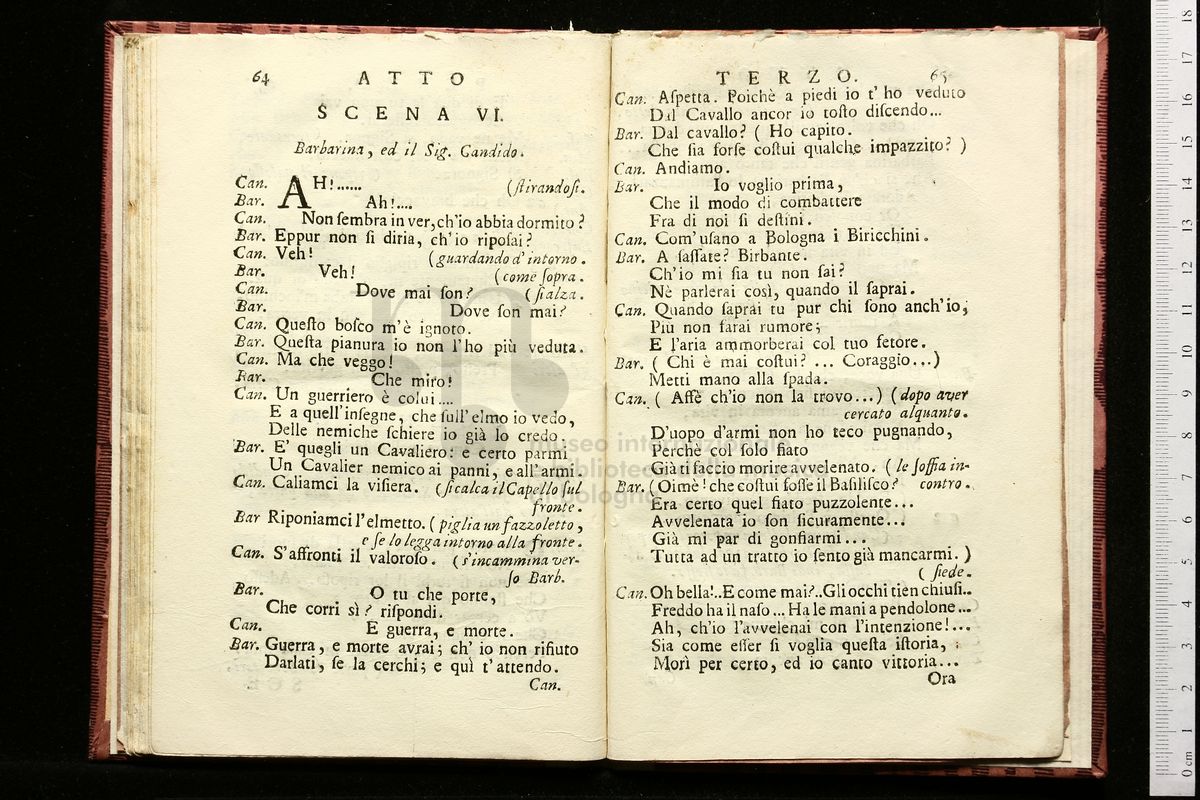 64 ATTO
SCENA VI.
Barbarina, ed il Sig. Candido.
Can. AH!...... (ſtirandoſi.
Bar. Ah!....
Can. Non ſembra in ver, ch'io abbia dormito?
Bar. Eppur non ſi diria, ch'io ripoſai?
Can. Veh! (guardando d'intorno.
Bar. Veh! (come ſopra.
Can. Dove mai ſon? (ſi alza.
Bar. Dove ſon mai?
Can. Queſto boſco m'è ignoto.
Bar. Queſta pianura io non l'ho più veduta.
Can. Ma che veggo!
Bar. Che miro!
Can. Un guerriero è colui....
E a quell'inſegne, che ſull'elmo io vedo,
Delle nemiche ſchiere io già lo credo.
Bar. E' quegli un Cavaliero: e certo parmi
Un Cavalier nemico ai panni, e all'armi.
Can. Caliamci la viſiera. (ſi calca il Capello ſul
fronte.
Bar Riponiamci l'elmetto. (piglia un fazzoletto,
e ſe lo legga intorno alla fronte.
Can. S'affronti il valoroſo. (s'incammina ver-
ſo Barb.
Bar. O tu che porte,
Che corri sì? riſpondi.
Can. E guerra, e morte.
Bar. Guerra, e morte avrai; ch'io non rifiuto
Darlati, ſe la cerchi; e quì t'attendo.
Can.
TERZO. 65
Can. Aſpetta. Poichè a piedi io t'ho veduto
Dal Cavallo ancor io toſto diſcendo...
Bar. Dal cavallo? (Ho capito.
Che ſia forſe coſtui qualche impazzito?)
Can. Andiamo.
Bar. Io voglio prima,
Che il modo di combattere
Fra di noi ſi deſtini.
Can. Com'uſano a Bologna i Biricchini.
Bar. A ſaſſate? Birbante.
Ch'io mi ſia tu non ſai?
Nè parlerai così, quando il ſaprai.
Can. Quando ſaprai tu pur chi ſono anch'io,
Più non farai rumore;
E l'aria ammorberai col tuo fetore.
Bar. (Chi è mai coſtui? ... Coraggio...)
Metti mano alla ſpada.
Can. (Affè ch'io non la trovo...) (dopo aver
cercato alquanto.
D'uopo d'armi non ho teco pugnando,
Perchè col ſolo fiato
Già ti faccio morire avvelenato. (le ſoffia in-
Bar. (Oimè! che coſtui foſſe il Baſiliſco? contro.
Era certo quel fiato puzzolente...
Avvelenata io ſon ſicuramente...
Già mi par di gonfiarmi...
Tutta ad un tratto io ſento già mancarmi.)
(ſiede.
Can. Oh bella!..E come mai?..Gli occhi tien chiuſi..
Freddo ha il naſo... Ha le mani a pendolone...
Ah, ch'io l'avvelenai con l'intenzione!...
Sia come eſſer ſi voglia queſta iſtoria,
Morì per certo, ed io canto vittoria...
Ora
museo internazionale
biblioteca della
bologna
18
17
16
15
14
13
12
11
10
9
8
7
6
5
4
3
2
1
0 cm